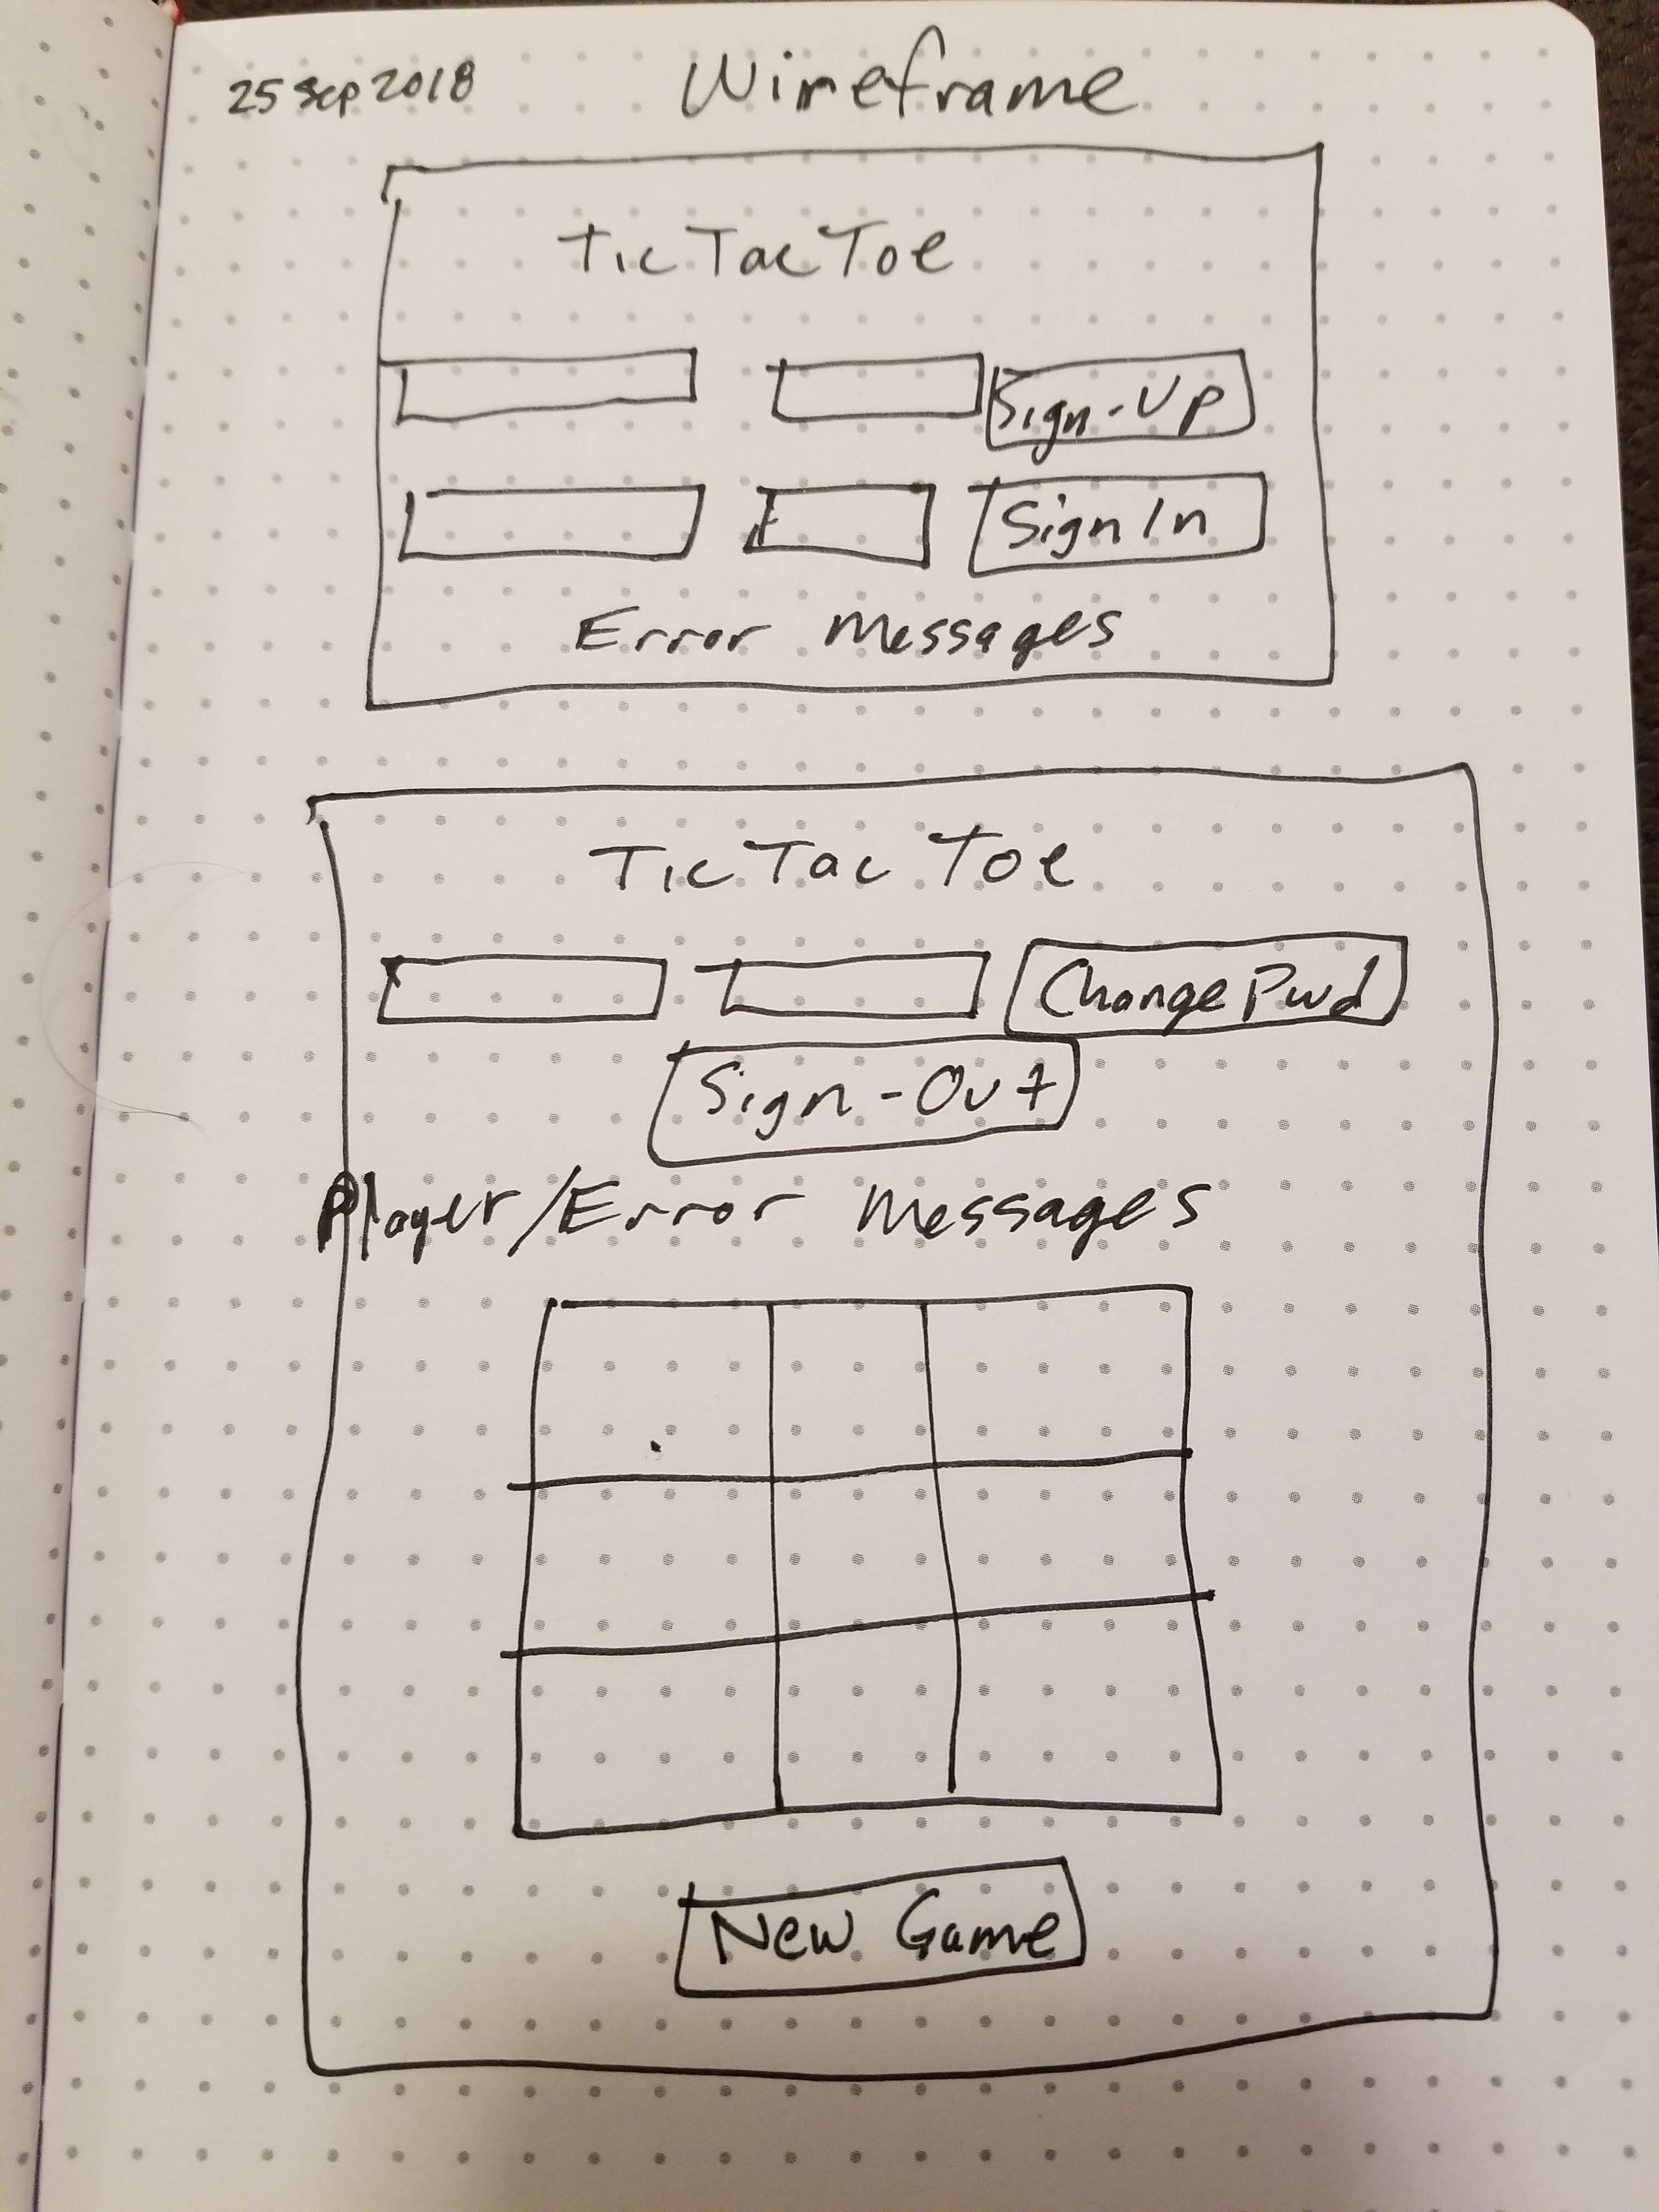 25 Sep 2018 Wireframe
Tic Tac Toe
Sign-Up
Sign In
Error Messages
Tic Tac Toe
Change Pwd
Sign-Out
Player/Error Messages
New Game